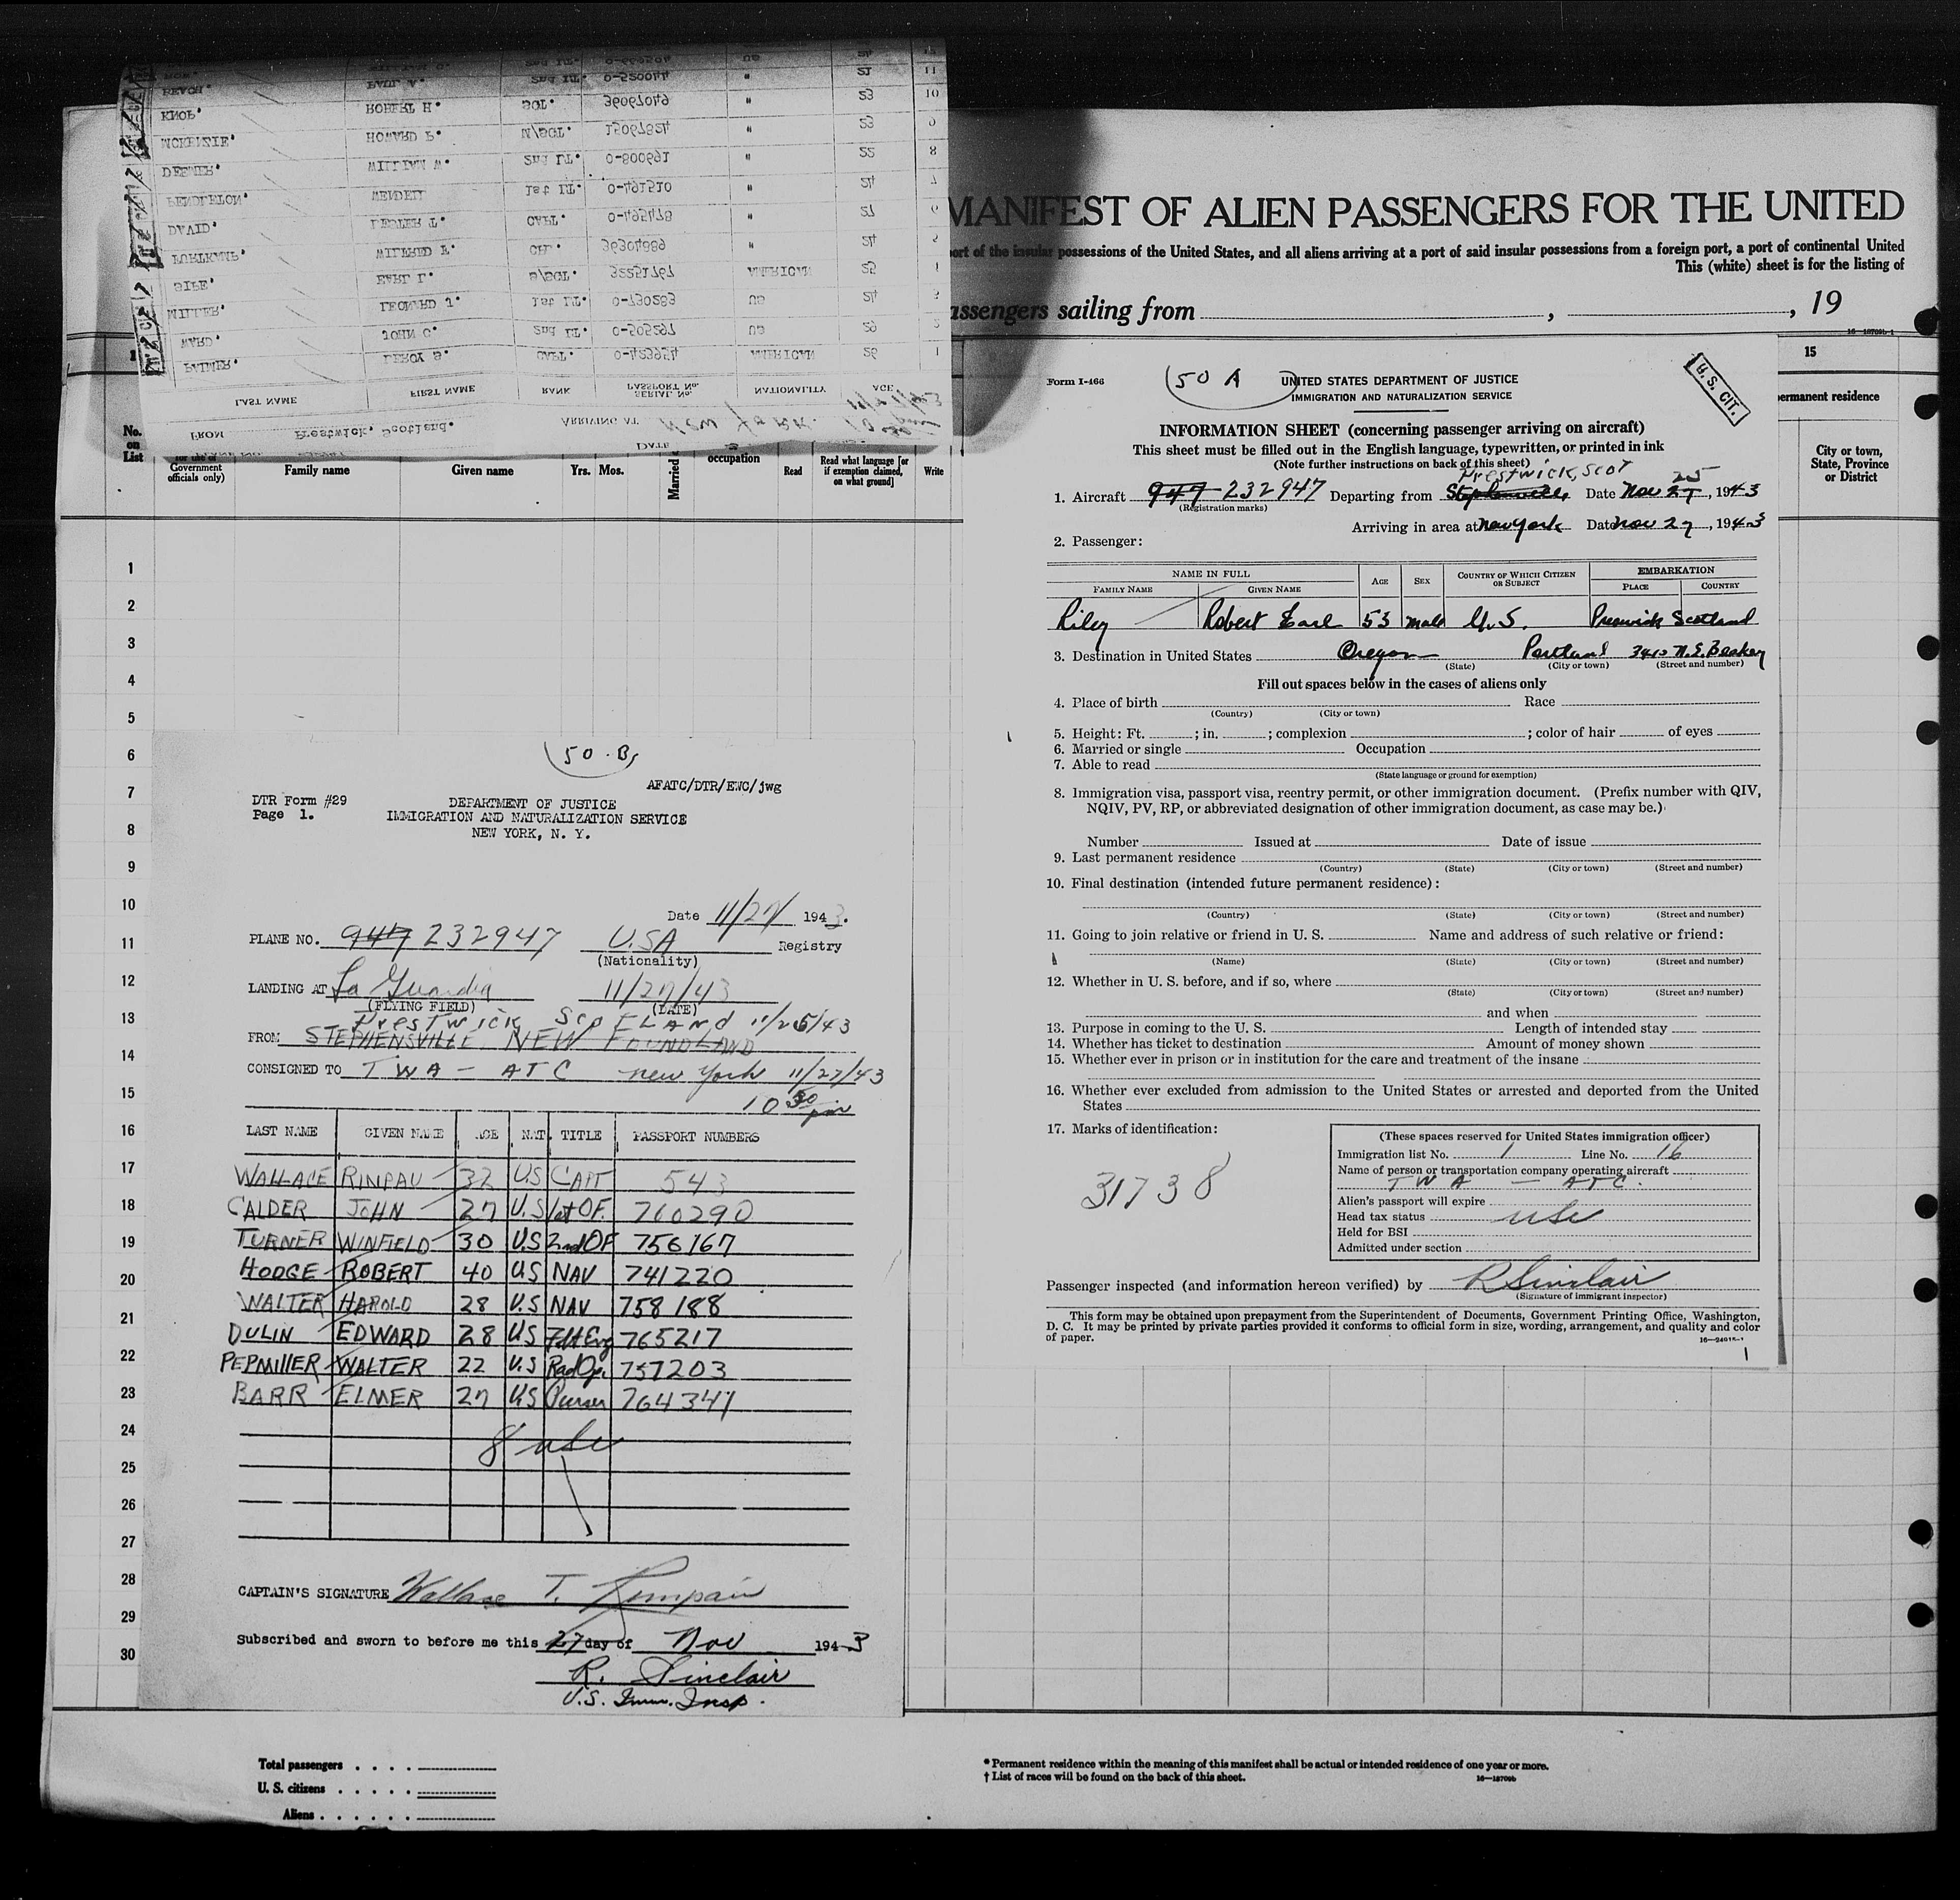 MANIFEST OF ALIEN PASSENGERS FOR THE UNITED
port of the insular possessions of the United States, and all aliens arriving at a port of said insular possessions from a foreign port, a port of continental United
This (white) sheet is for the listing of
assengers sailing from , , 19
15
ermanent residence
City or town, State, Province or District
FROM Prestwick, Scotland. ARRIVING AT New York. DATE
LAST NAME FIRST NAME RANK PASSPORT No. SERIAL No. NATIONALITY AGE
PALMER. LEROY S. CAPT. 0-423954 AMERICAN 26 1
WARD. JOHN C. 2nd LT. 0-505297 US 26 2
MILLER. LEONARD J. 1st LT. 0-730283 US 24 3
SIPE. EARL L. S/SGT. 32251767 AMERICAN 25 4
WILFRED F. 36304889 " 24 5
DVAID. LESLER T. CAPT. 0-495478 " 27 6
PENDLETON. WENDELL 1st LT. 0-491510 " 24 7
DEEMER. WILLIAM W. 2nd LT. 0-800691 " 22 8
MCKENZIE. HOWARD P. M/SGT. 15067824 " 23 9
KNOP. ROBERT H. SGT. 36067049 " 23 10
BEACH. PAUL A. 2nd LT. 0-520044 " 21 11
No. on List
Government officials only)
Family name
Given name
Yrs. Mos.
Married
occupation
Read
Read what language [or if exemption claimed, on what ground]
Write
1
2
3
4
5
6
7
8
9
10
11
12
13
14
15
16
17
18
19
20
21
22
23
24
25
26
27
28
29
30
50-B
AFATC/DTR/EWC/jwg
DTR Form #29
Page 1.
DEPARTMENT OF JUSTICE
IMMIGRATION AND NATURALIZATION SERVICE
NEW YORK, N. Y.
Date 11/27/ 1943.
PLANE NO. 947 232947 USA Registry
(Nationality)
LANDING AT La Guardia 11/27/43
(FLYING FIELD) (DATE)
Prestwick Scotland 11/25/43
FROM STEPHENSVILLE NEW FOUNDLAND
CONSIGNED TO TWA - ATC New York 11/27/43
10 30 pm
LAST NAME GIVEN NAME AGE NAT. TITLE PASSPORT NUMBERS
WALLACE RINPAU 32 U.S CAPT 543
CALDER JOHN 27 U.S 1st OF. 760290
TURNER WINFIELD 30 U.S 2nd OF 756167
HODGE ROBERT 40 U.S NAV 741220
WALTER HAROLD 28 U.S NAV 758188
DULIN EDWARD 28 US Flt Eng 765217
PEPMILLER WALTER 22 U.S Rad Op. 757203
BARR ELMER 27 U.S Purser 764341
8 USC
CAPTAIN'S SIGNATURE Wallace T. Rinpau
Subscribed and sworn to before me this 27 day of Nov 1943
R. Sinclair
U.S. Imm. Insp.
Form I-466
50 A
U.S. CIT.
UNITED STATES DEPARTMENT OF JUSTICE
IMMIGRATION AND NATURALIZATION SERVICE
INFORMATION SHEET (concerning passenger arriving on aircraft)
This sheet must be filled out in the English language, typewritten, or printed in ink
(Note further instructions on back of this sheet)
Prestwick, Scot 25
1. Aircraft 947 232947 Departing from Stephenville Date Nov 27, 1943
(Registration marks)
Arriving in area at New York Date Nov 27, 1943
2. Passenger:
NAME IN FULL AGE SEX COUNTRY OF WHICH CITIZEN OR SUBJECT EMBARKATION
FAMILY NAME GIVEN NAME PLACE COUNTRY
Riley Robert Earl 53 male U.S. Preswick Scotland
3. Destination in United States Oregon Portland 3410 N.E.
(State) (City or town) (Street and number)
Fill out spaces below in the cases of aliens only
4. Place of birth Race
(Country) (City or town)
5. Height: Ft. ; in. ; complexion ; color of hair of eyes
6. Married or single Occupation
7. Able to read
(State language or ground for exemption)
8. Immigration visa, passport visa, reentry permit, or other immigration document. (Prefix number with QIV,
NQIV, PV, RP, or abbreviated designation of other immigration document, as case may be.)
Number Issued at Date of issue
9. Last permanent residence
(Country) (State) (City or town) (Street and number)
10. Final destination (intended future permanent residence):
(Country) (State) (City or town) (Street and number)
11. Going to join relative or friend in U. S. Name and address of such relative or friend:
(Name) (State) (City or town) (Street and number)
12. Whether in U. S. before, and if so, where
(State) (City or town) (Street and number)
and when
13. Purpose in coming to the U. S. Length of intended stay
14. Whether has ticket to destination Amount of money shown
15. Whether ever in prison or in institution for the care and treatment of the insane
16. Whether ever excluded from admission to the United States or arrested and deported from the United
States
17. Marks of identification:
31738
(These spaces reserved for United States immigration officer)
Immigration list No. 1 Line No. 16
Name of person or transportation company operating aircraft
TWA - ATC.
Alien's passport will expire
Head tax status USC
Held for BSI
Admitted under section
Passenger inspected (and information hereon verified) by R Sinclair
(Signature of immigrant inspector)
This form may be obtained upon prepayment from the Superintendent of Documents, Government Printing Office, Washington,
D. C. It may be printed by private parties provided it conforms to official form in size, wording, arrangement, and quality and color
of paper.
Total passengers
U. S. citizens
Aliens
* Permanent residence within the meaning of this manifest shall be actual or intended residence of one year or more.
† List of races will be found on the back of this sheet.